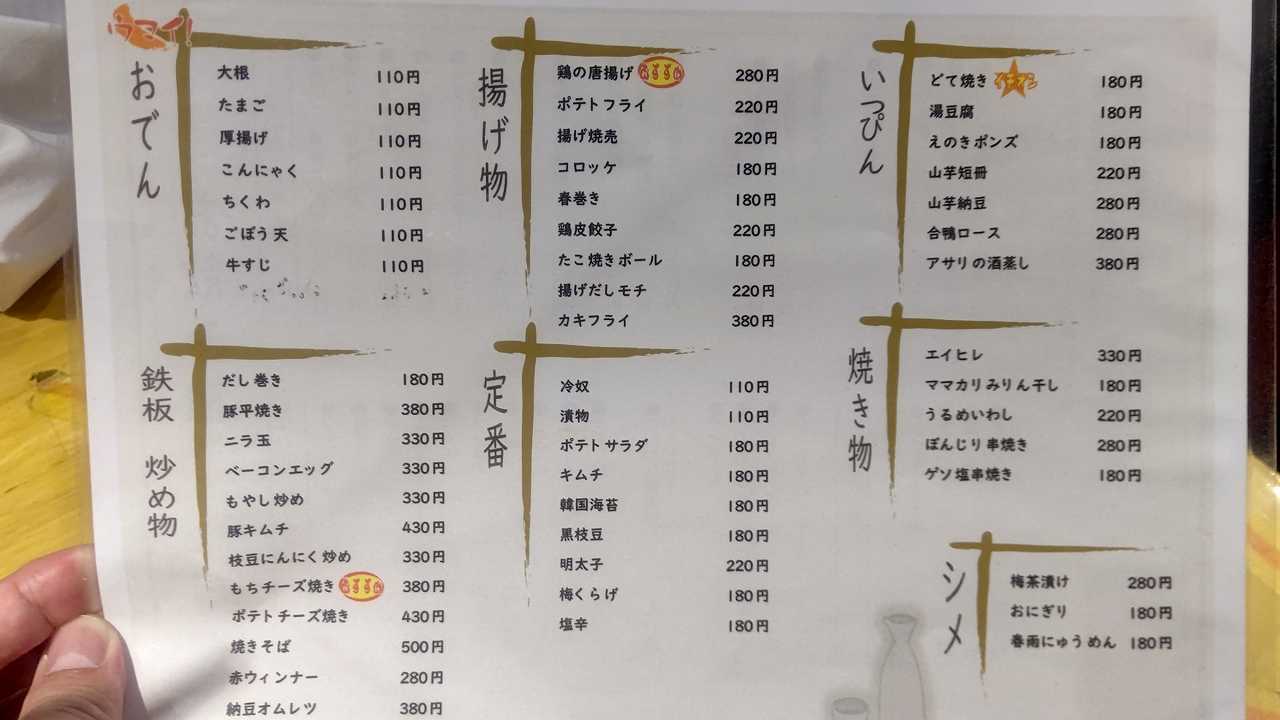 ウマイ!
おでん
大根 110円
たまご 110円
厚揚げ 110円
こんにゃく 110円
ちくわ 110円
ごぼう天 110円
牛すじ 110円
鉄板 炒め物
だし巻き 180円
豚平焼き 380円
ニラ玉 330円
ベーコンエッグ 330円
もやし炒め 330円
豚キムチ 430円
枝豆にんにく炒め 330円
もちチーズ焼き おすすめ 380円
ポテトチーズ焼き 430円
焼きそば 500円
赤ウィンナー 280円
納豆オムレツ 380円
揚げ物
鶏の唐揚げ おすすめ 280円
ポテトフライ 220円
揚げ焼売 220円
コロッケ 180円
春巻き 180円
鶏皮餃子 220円
たこ焼きボール 180円
揚げだしモチ 220円
カキフライ 380円
定番
冷奴 110円
漬物 110円
ポテトサラダ 180円
キムチ 180円
韓国海苔 180円
黒枝豆 180円
明太子 220円
梅くらげ 180円
塩辛 180円
いっぴん
どて焼き イチバン 180円
湯豆腐 180円
えのきポンズ 180円
山芋短冊 220円
山芋納豆 280円
合鴨ロース 280円
アサリの酒蒸し 380円
焼き物
エイヒレ 330円
ママカリみりん干し 180円
うるめいわし 220円
ぼんじり串焼き 280円
ゲソ塩串焼き 180円
シメ
梅茶漬け 280円
おにぎり 180円
春雨にゅうめん 180円